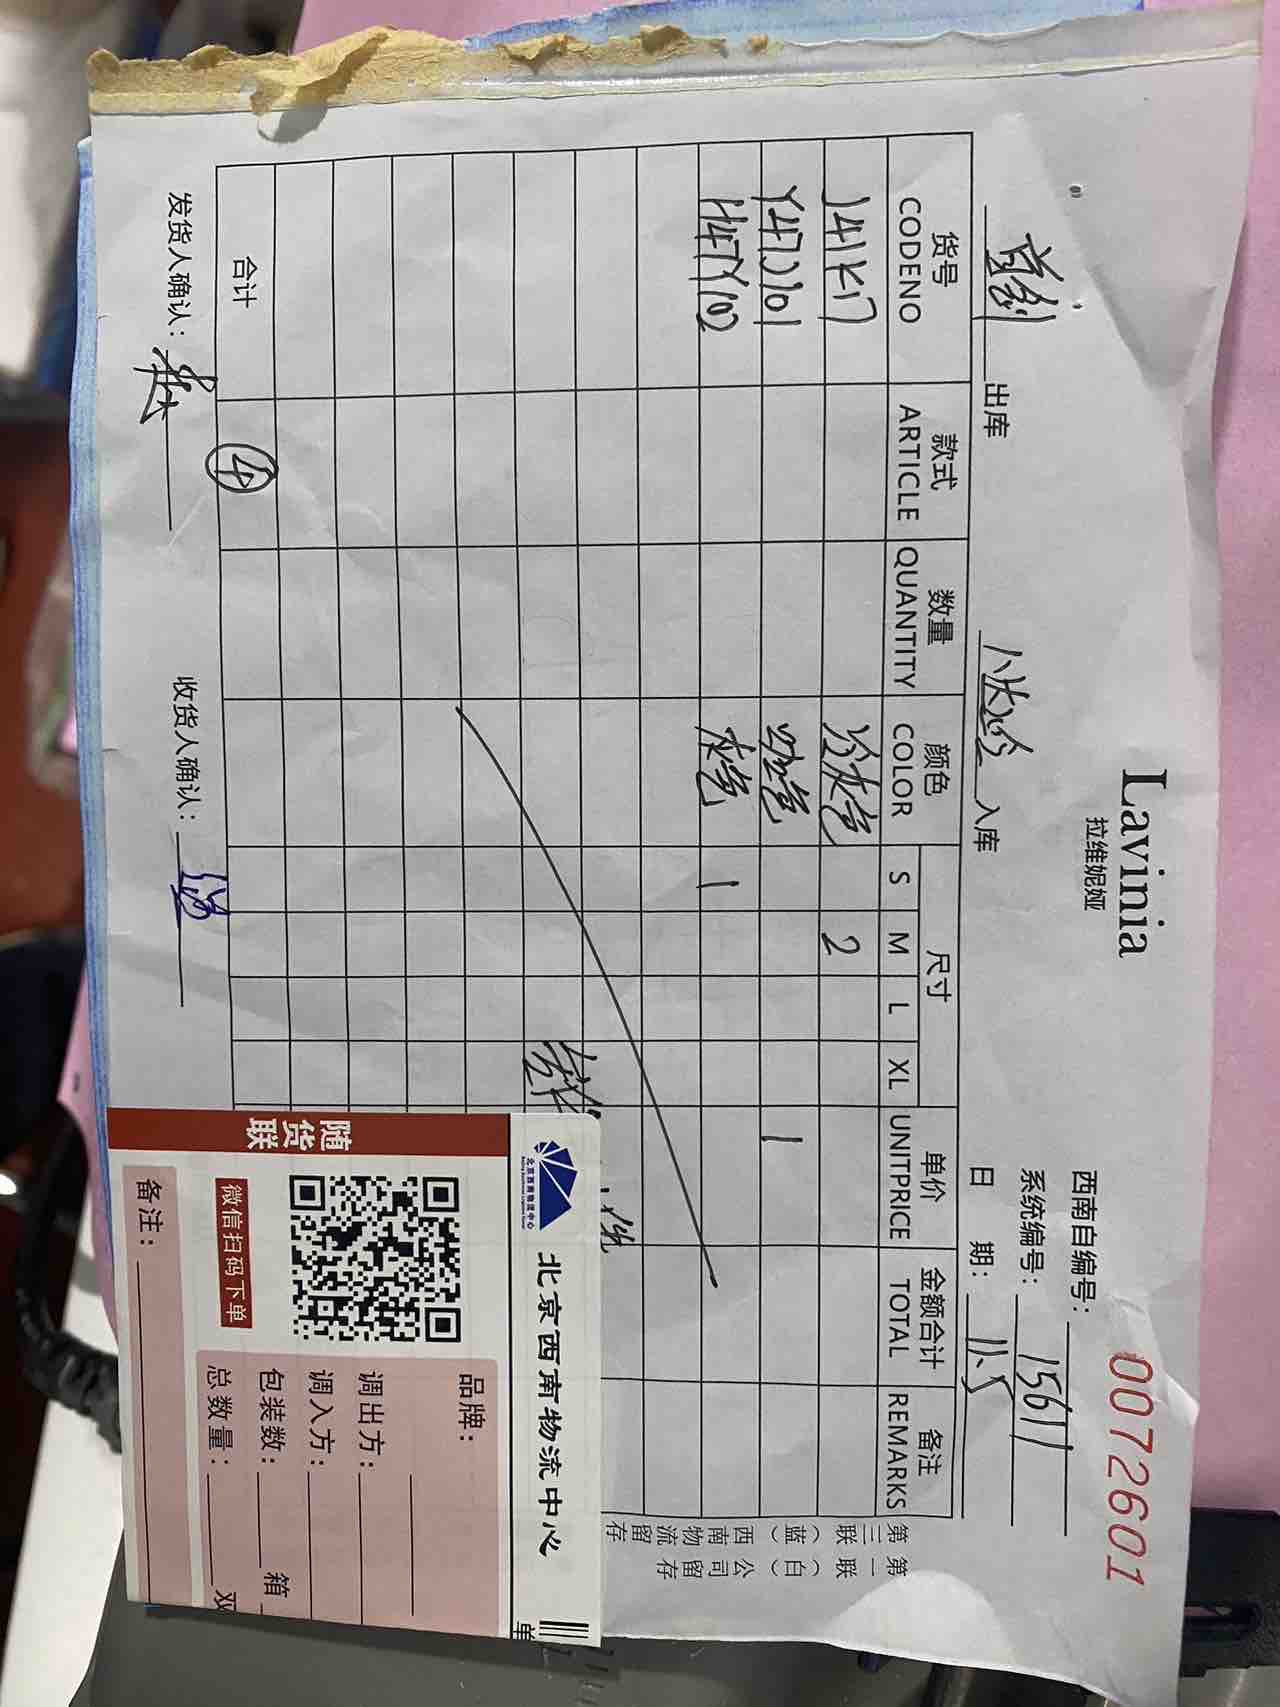 Lavinia
拉维妮娅
0072601
西南自编号：
系统编号： 15611
出库 入库 日 期： 11.5
货号 款式 数量 颜色 尺寸 单价 金额合计 备注
CODENO ARTICLE QUANTITY COLOR S M L XL UNITPRICE TOTAL REMARKS
J41K17 冷灰色 2
Y47J101 咖色 1
H47Y102 灰色 1
合计 ④
发货人确认：
收货人确认：
第一联（白）公司留存
第三联（蓝）西南物流留存
北京西南物流中心
北京西南物流中心
单
随货联
微信扫码下单
品牌：
调出方：
调入方：
包装数： 箱
总数量： 双
备注：